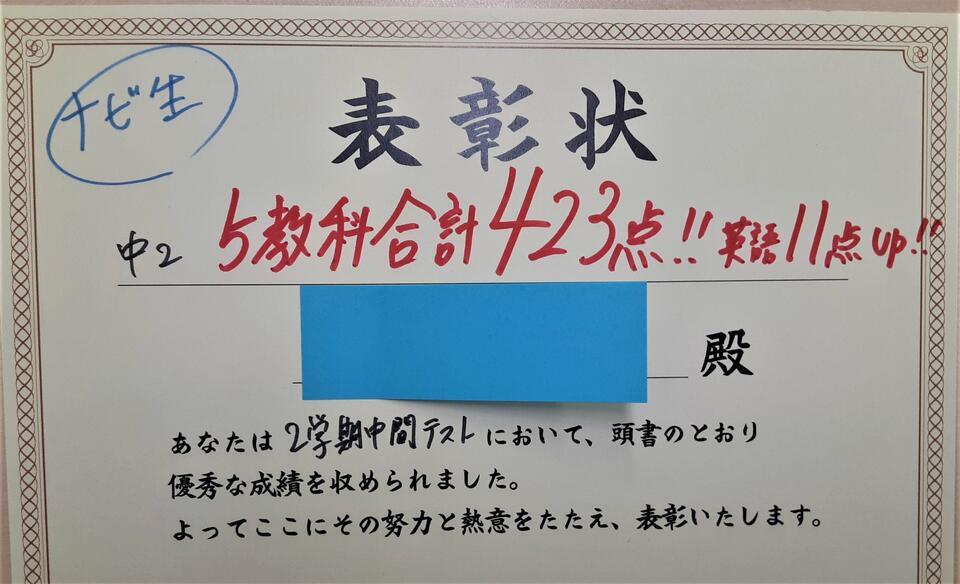 ナビ生
表彰状
中2 5教科合計423点!! 英語11点up!!
殿
あなたは2学期中間テストにおいて、頭書のとおり
優秀な成績を収められました。
よってここにその努力と熱意をたたえ、表彰いたします。